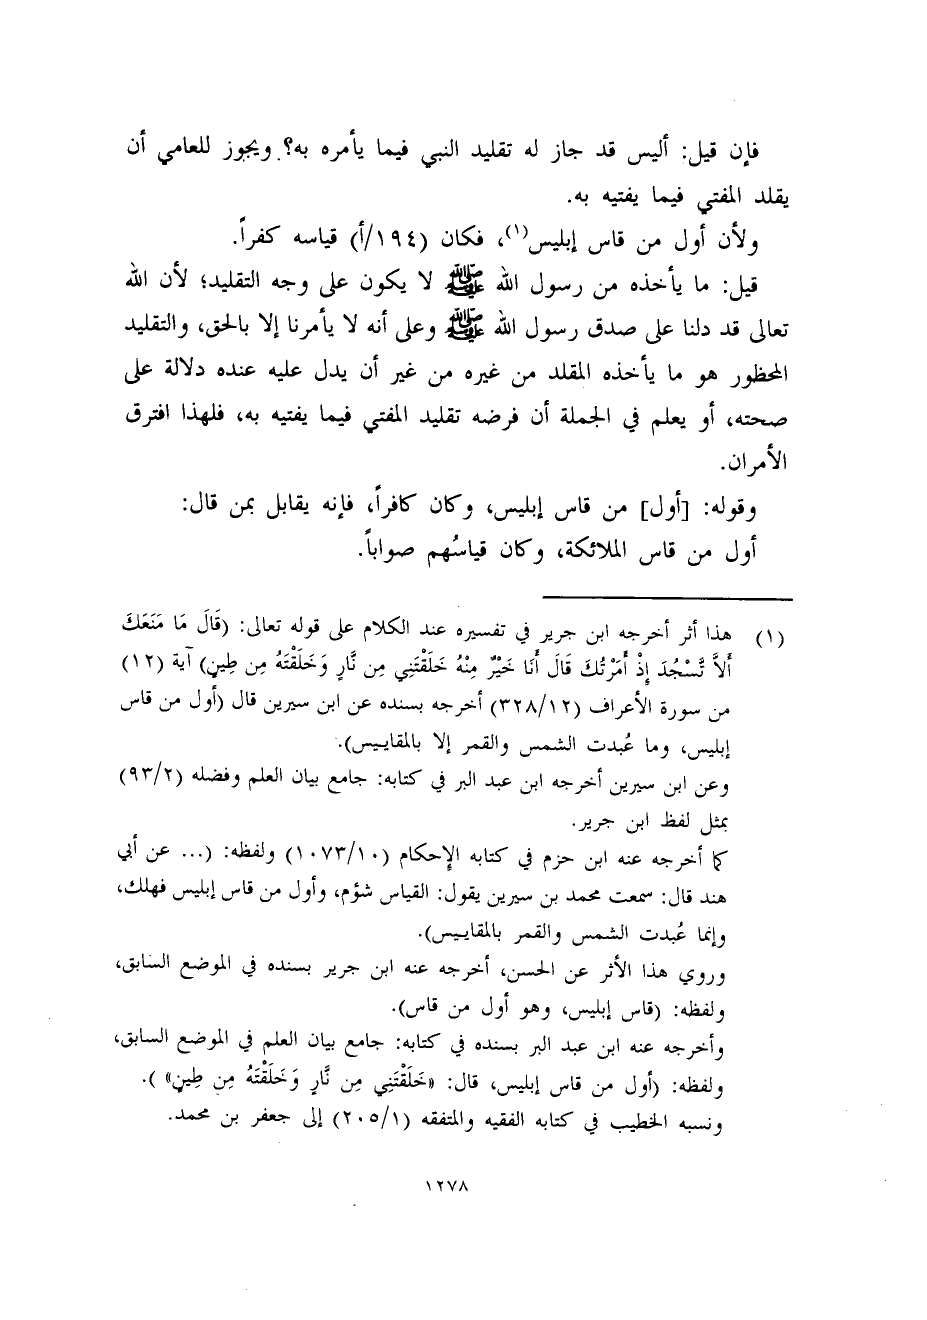 فإن قيل: أليس قد جاز له تقليد النبي فيما يأمره به؟ ويجوز للعامي أن
يقلد المفتي فيما يفتيه به.
ولأن أول من قاس إبليس(١)، فكان (١٩٤/أ) قياسه كفراً.
قيل: ما يأخذه من رسول الله ﷺ لا يكون على وجه التقليد؛ لأن الله
تعالى قد دلنا على صدق رسول الله ﷺ وعلى أنه لا يأمرنا إلا بالحق، والتقليد
المحظور هو ما يأخذه المقلد من غيره من غير أن يدل عليه عنده دلالة على
صحته، أو يعلم في الجملة أن فرضه تقليد المفتي فيما يفتيه به، فلهذا افترق
الأمران.
وقوله: [أول] من قاس إبليس، وكان كافراً، فإنه يقابل بمن قال:
أول من قاس الملائكة، وكان قياسُهم صواباً.
(١) هذا أثر أخرجه ابن جرير في تفسيره عند الكلام على قوله تعالى: (قَالَ مَا مَنَعَكَ
أَلاَّ تَسْجُدَ إِذْ أَمَرْتُكَ قَالَ أَنَا خَيْرٌ مِنْهُ خَلَقْتَنِي مِن نَّارٍ وَخَلَقْتَهُ مِن طِينٍ) آية (١٢)
من سورة الأعراف (٣٢٨/١٢) أخرجه بسنده عن ابن سيرين قال (أول من قاس
إبليس، وما عُبدت الشمس والقمر إلا بالمقاييس).
وعن ابن سيرين أخرجه ابن عبد البر في كتابه: جامع بيان العلم وفضله (٩٣/٢)
بمثل لفظ ابن جرير.
كما أخرجه عنه ابن حزم في كتابه الإحكام (١٠٧٣/١٠) ولفظه: (... عن أبي
هند قال: سمعت محمد بن سيرين يقول: القياس شؤم، وأول من قاس إبليس فهلك،
وإنما عُبدت الشمس والقمر بالمقاييس).
وروي هذا الأثر عن الحسن، أخرجه عنه ابن جرير بسنده في الموضع السابق،
ولفظه: (قاس إبليس، وهو أول من قاس).
وأخرجه عنه ابن عبد البر بسنده في كتابه: جامع بيان العلم في الموضع السابق،
ولفظه: (أول من قاس إبليس، قال: «خَلَقْتَنِي مِن نَّارٍ وَخَلَقْتَهُ مِن طِينٍ» ).
ونسبه الخطيب في كتابه الفقيه والمتفقه (٢٠٥/١) إلى جعفر بن محمد.
١٢٧٨